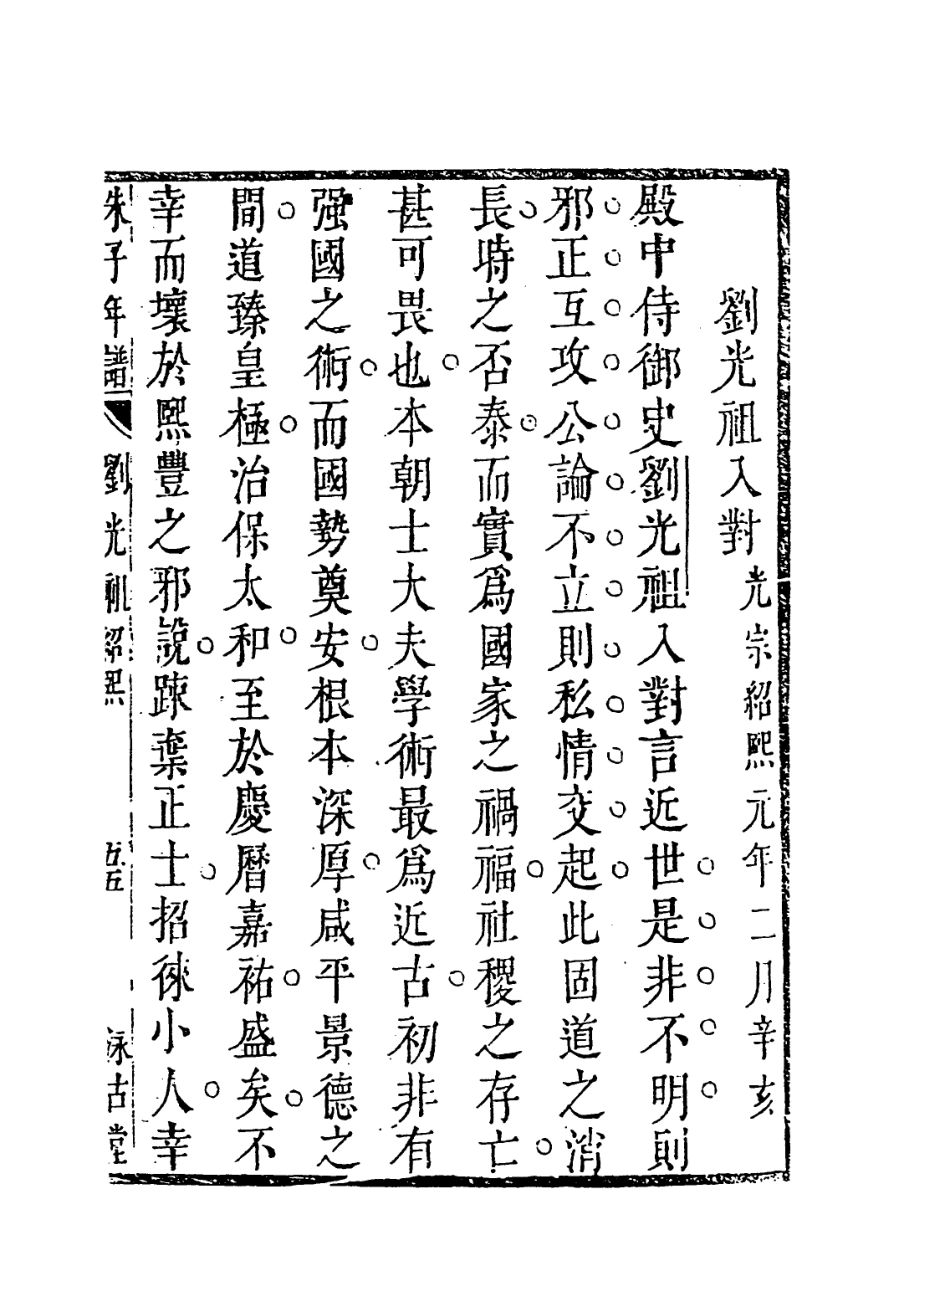 劉光祖入對光宗紹熙元年二月辛亥
殿中侍御史劉光祖入對言近世是非不明則
邪正互攻公論不立則私情交起此固道之消
長時之否泰而實爲國家之禍福社稷之存亡
甚可畏也本朝士大夫學術最爲近古初非有
强國之術而國勢奠安根本深厚咸平景德之
間道臻皇極治保太和至於慶曆嘉祐盛矣不
幸而壞於熙豐之邪說踈棄正士招徠小人幸
朱子年譜 劉光祖紹熙 五五 詠古堂